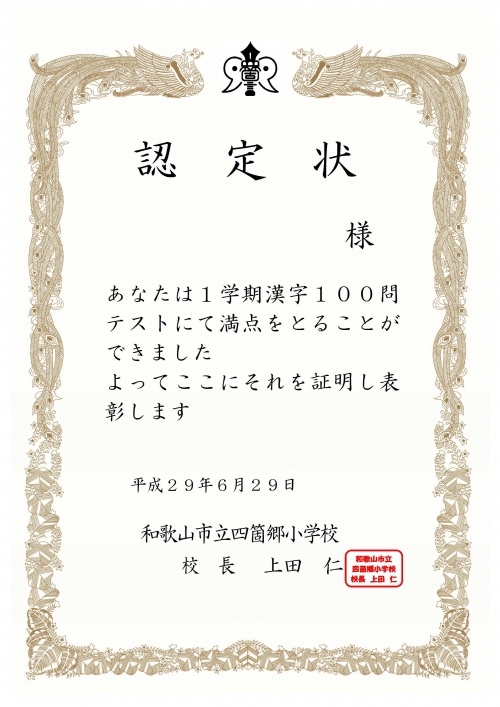 認定状
様
あなたは１学期漢字１００問
テストにて満点をとることが
できました
よってここにそれを証明し表
彰します
平成２９年６月２９日
和歌山市立四箇郷小学校
校長　上田　仁
和歌山市立
四箇郷小学校
校長　上田　仁